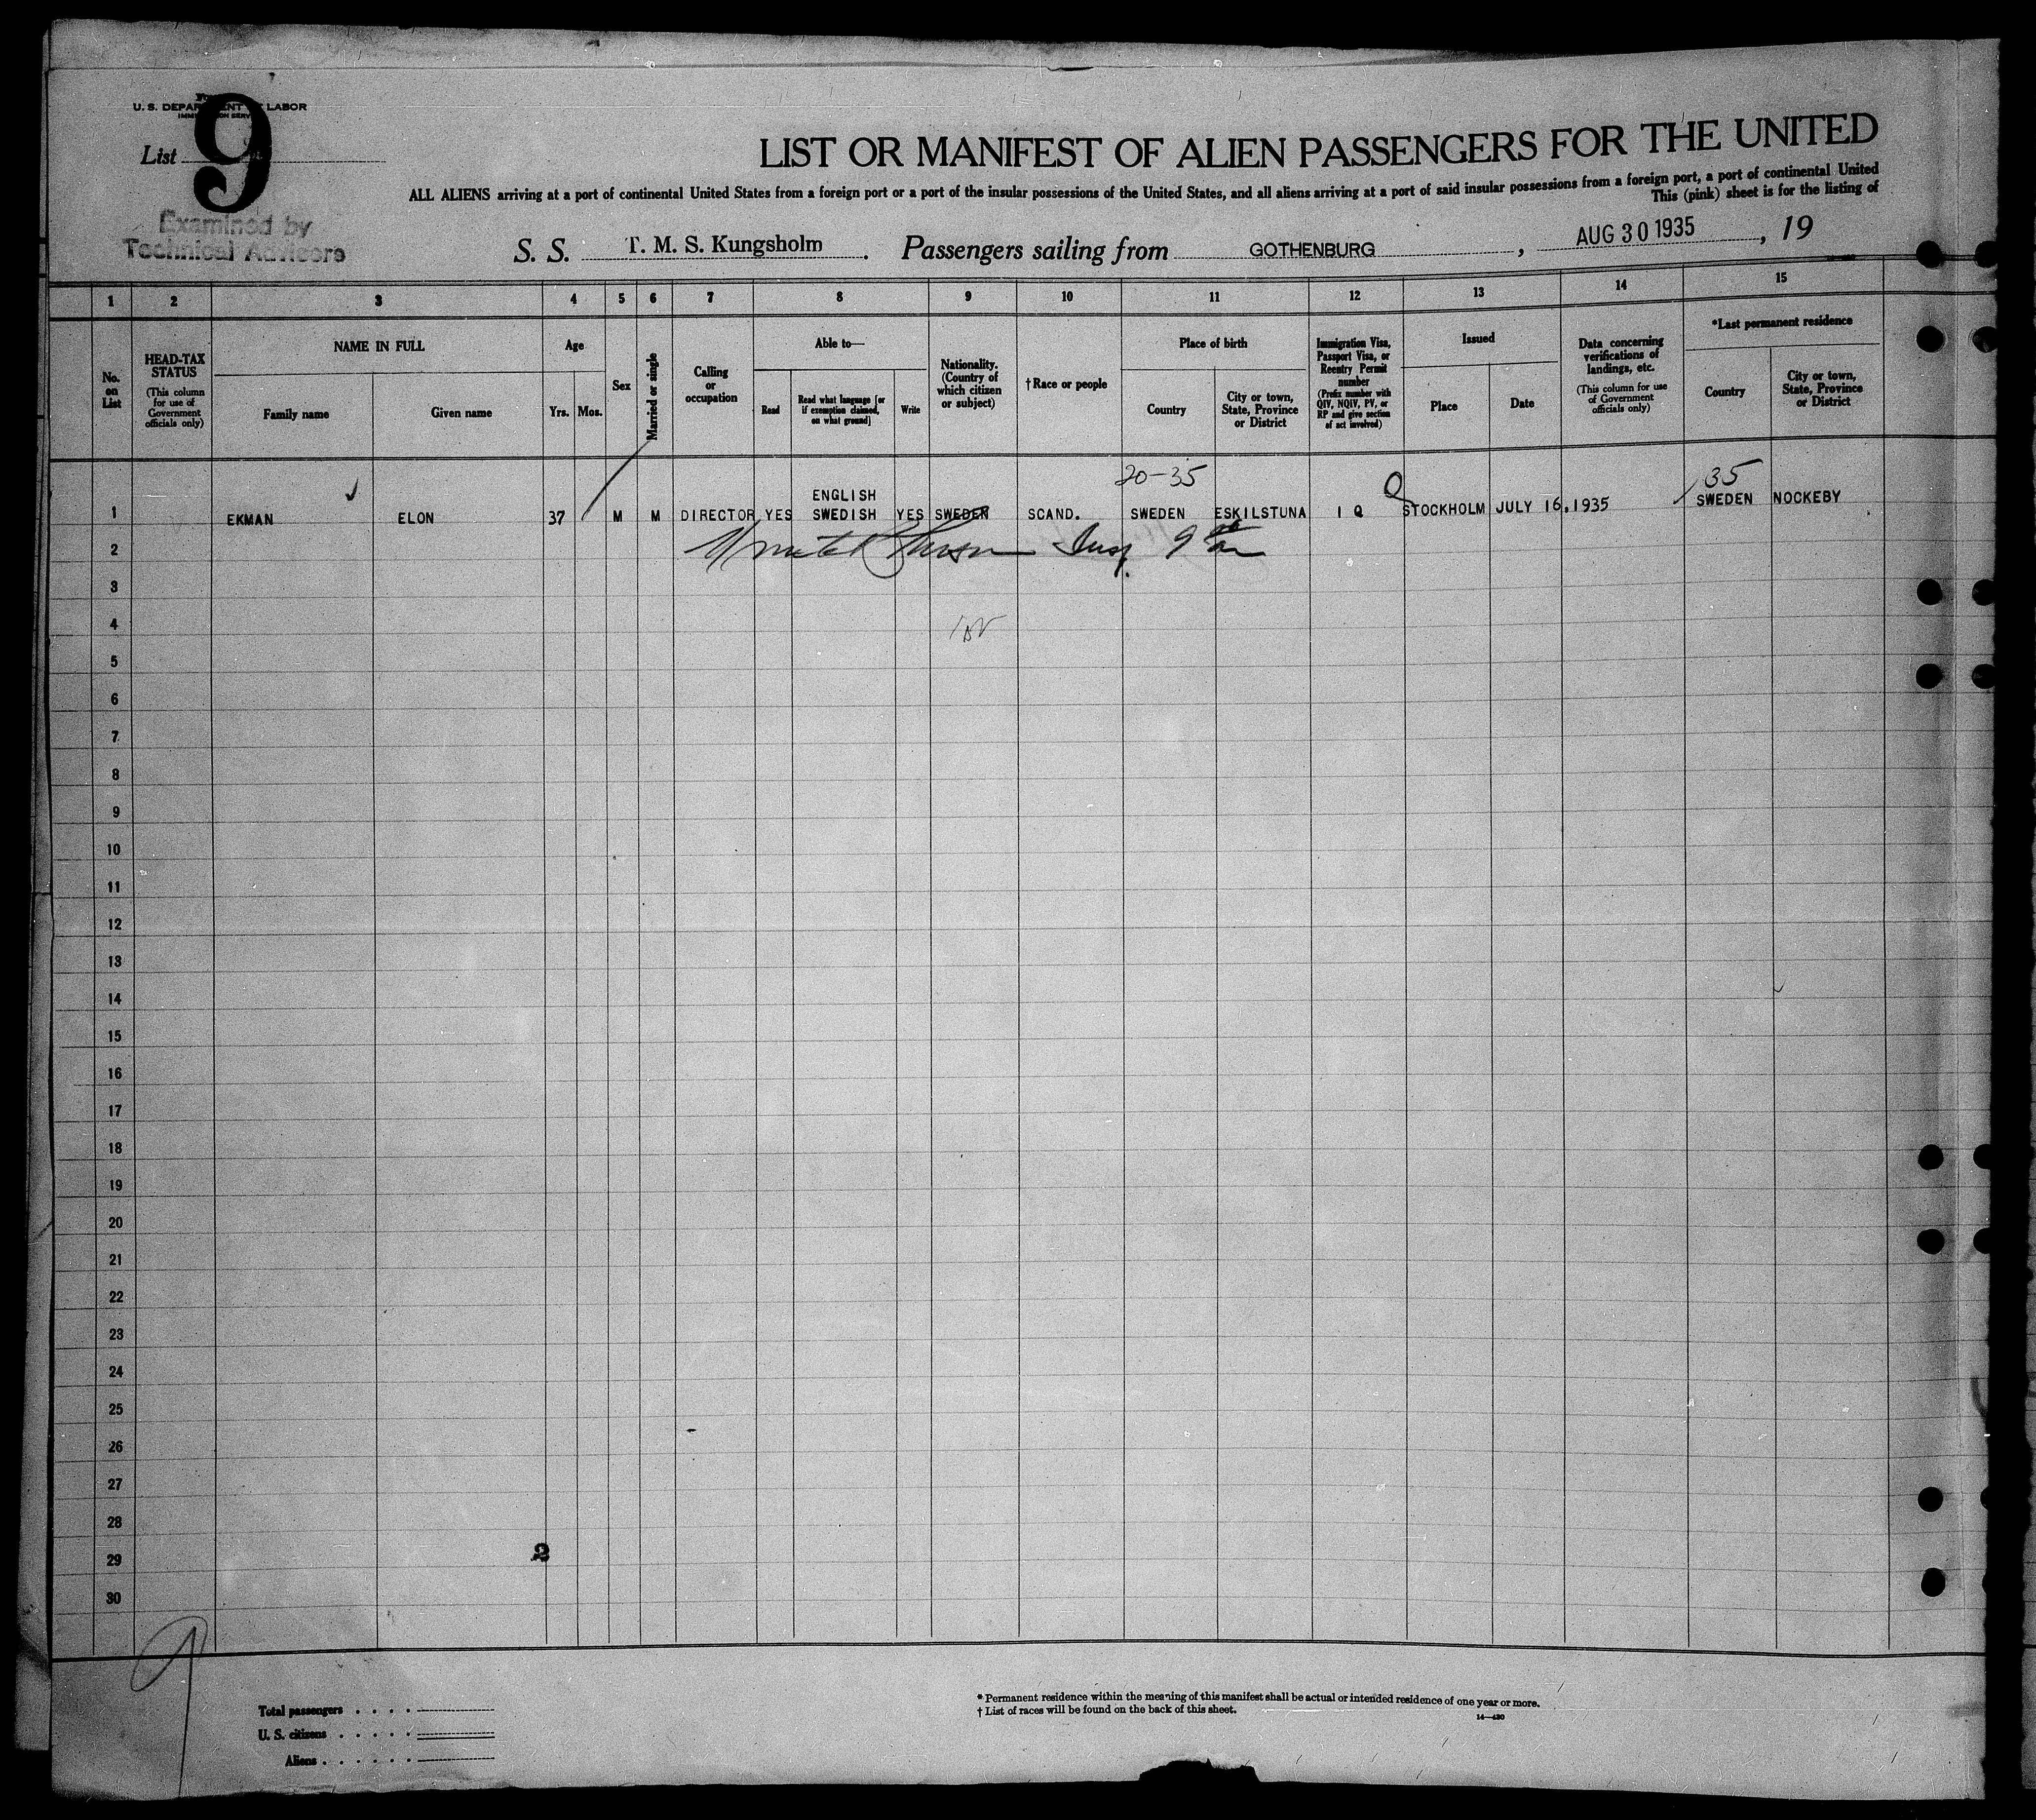 U. S. DEPARTMENT OF LABOR
List 9
Examined by
Technical Advisors
LIST OR MANIFEST OF ALIEN PASSENGERS FOR THE UNITED
ALL ALIENS arriving at a port of continental United States from a foreign port or a port of the insular possessions of the United States, and all aliens arriving at a port of said insular possessions from a foreign port, a port of continental United
This (pink) sheet is for the listing of
S. S. T. M. S. Kungsholm. Passengers sailing from GOTHENBURG, AUG 30 1935, 19
1 2 3 4 5 6 7 8 9 10 11 12 13 14 15
No. on List
HEAD-TAX STATUS
(This column for use of Government officials only)
NAME IN FULL
Family name
Given name
Age
Yrs. Mos.
Sex
Married or single
Calling or occupation
Able to—
Read
Read what language [or if exemption claimed, on what ground]
Write
Nationality. (Country of which citizen or subject)
†Race or people
Place of birth
Country
City or town, State, Province or District
Immigration Visa, Passport Visa, or Reentry Permit number
(Prefix number with QIV, NQIV, PV, or RP and give section of act involved)
Issued
Place
Date
Data concerning verifications of landings, etc.
(This column for use of Government officials only)
*Last permanent residence
Country
City or town, State, Province or District
20-35 35
1 EKMAN ELON 37 M M DIRECTOR YES ENGLISH SWEDISH YES SWEDEN SCAND. SWEDEN ESKILSTUNA I Q STOCKHOLM JULY 16, 1935 SWEDEN NOCKEBY
2
3
4
5
6
7
8
9
10
11
12
13
14
15
16
17
18
19
20
21
22
23
24
25
26
27
28
29
2
30
9
Total passengers . . . .
U. S. citizens . . . . .
Aliens . . . . . .
* Permanent residence within the meaning of this manifest shall be actual or intended residence of one year or more.
† List of races will be found on the back of this sheet.
14—430